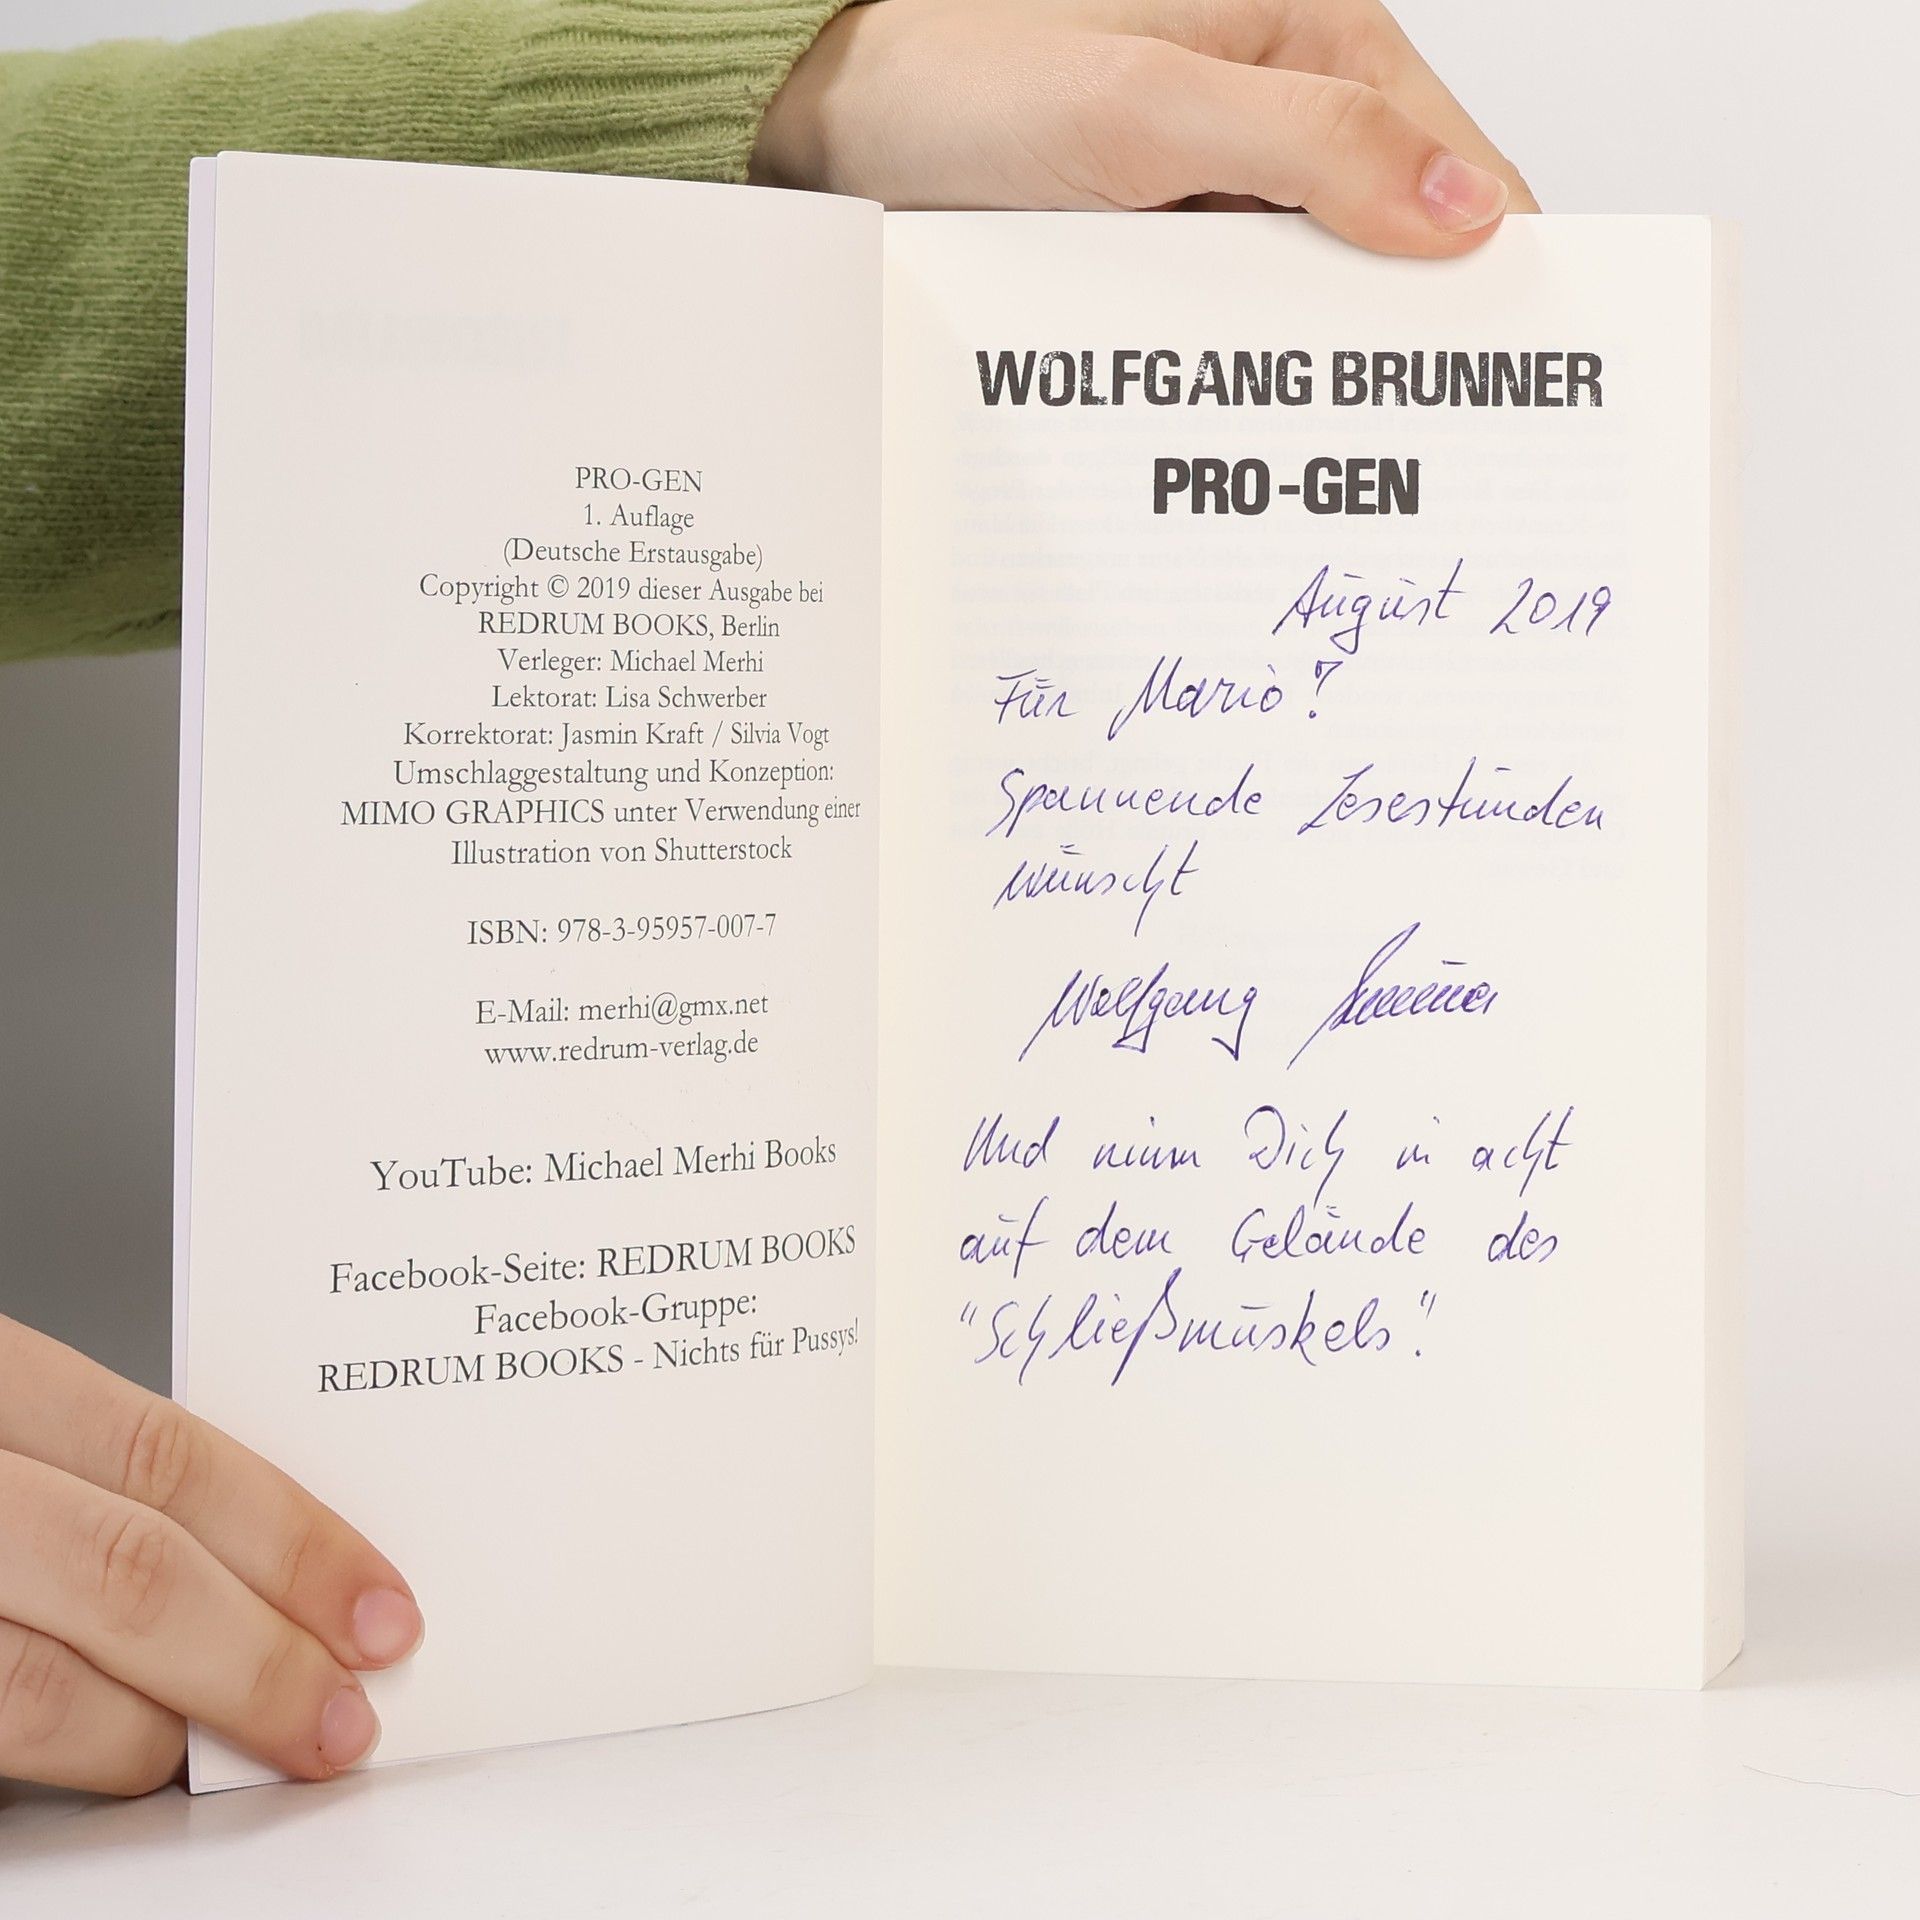 PRO-GEN
1. Auflage
(Deutsche Erstausgabe)
Copyright © 2019 dieser Ausgabe bei
REDRUM BOOKS, Berlin
Verleger: Michael Merhi
Lektorat: Lisa Schwerber
Korrektorat: Jasmin Kraft / Silvia Vogt
Umschlaggestaltung und Konzeption:
MIMO GRAPHICS unter Verwendung einer
Illustration von Shutterstock
ISBN: 978-3-95957-007-7
E-Mail: merhi@gmx.net
www.redrum-verlag.de
YouTube: Michael Merhi Books
Facebook-Seite: REDRUM BOOKS
Facebook-Gruppe:
REDRUM BOOKS - Nichts für Pussys!
WOLFGANG BRUNNER
PRO-GEN
August 2019
Für Mario!
Spannende Lesestunden
wünscht
Wolfgang Brunner
Und nimm Dich in acht
auf dem Gelände des
"Schließmuskels"!